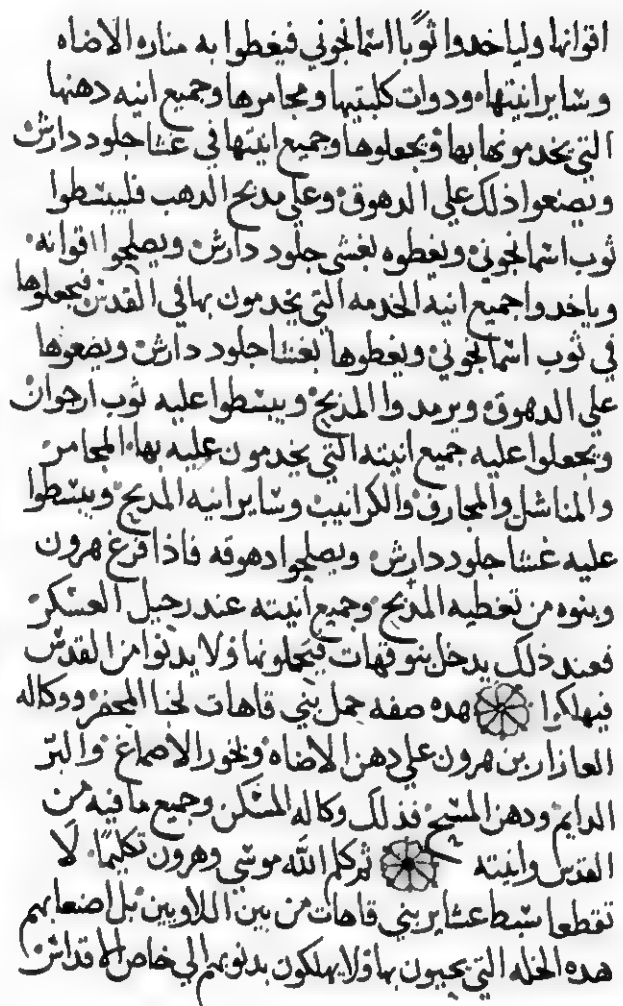 اقوانها ولياخدوا ثوبا اسمانجوني فيغطوا به مناره الاضاه
وساير انيتها ودوات كلبتيها ومجامرها وجميع انيه دهنها
التي يخدمونها بها ويجعلوها وجميع انيتها في غشا جلود دارش
ويصنعوا ذلك علي الدهوق وعلي مدبح الدهب فليبسطوا
ثوب اسمانجوني ويغطوه بغشي جلود دارش ويصلحوا اقوانه
وياخدوا جميع انيه الخدمه التي يخدمون بها في القدس فيجعلوها
في ثوب اسمانجوني ويغطوها بغشا جلود دارش ويضعوها
علي الدهوق ويرمدوا المدبح ويبسطوا عليه ثوب ارجوان
ويجعلوا عليه جميع انيته التي يخدمون عليه بها المجامر
والمناشل والمجارف والكرانيب وساير انيه المدبح ويبسطوا
عليه غشا جلود دارش ويصلحوا دهوقه فاذا فرغ هرون
وبنوه من تغطيه المدبح وجميع انيته عند رحيل العسكر
فعند ذلك يدخل بنو قهات فيحملونها ولا يدنوا من القدس
فيهلكوا هده صفه حمل بني قاهات لخبا المحضر ووكاله
العازار بن هرون علي دهن الاضاه وبخور الاصماغ والبر
الدايم ودهن المسيح فذلك وكاله المسكن وجميع ما فيه من
القدس وانيته ثم كلم الله موسي وهرون تكليما لا
تقطعا سبط عشاير بني قاهات من بين اللاويين بل اصنعا بهم
هده الخله التي يحيون بها ولا يهلكون بدنوبهم الي خاص الاقداس